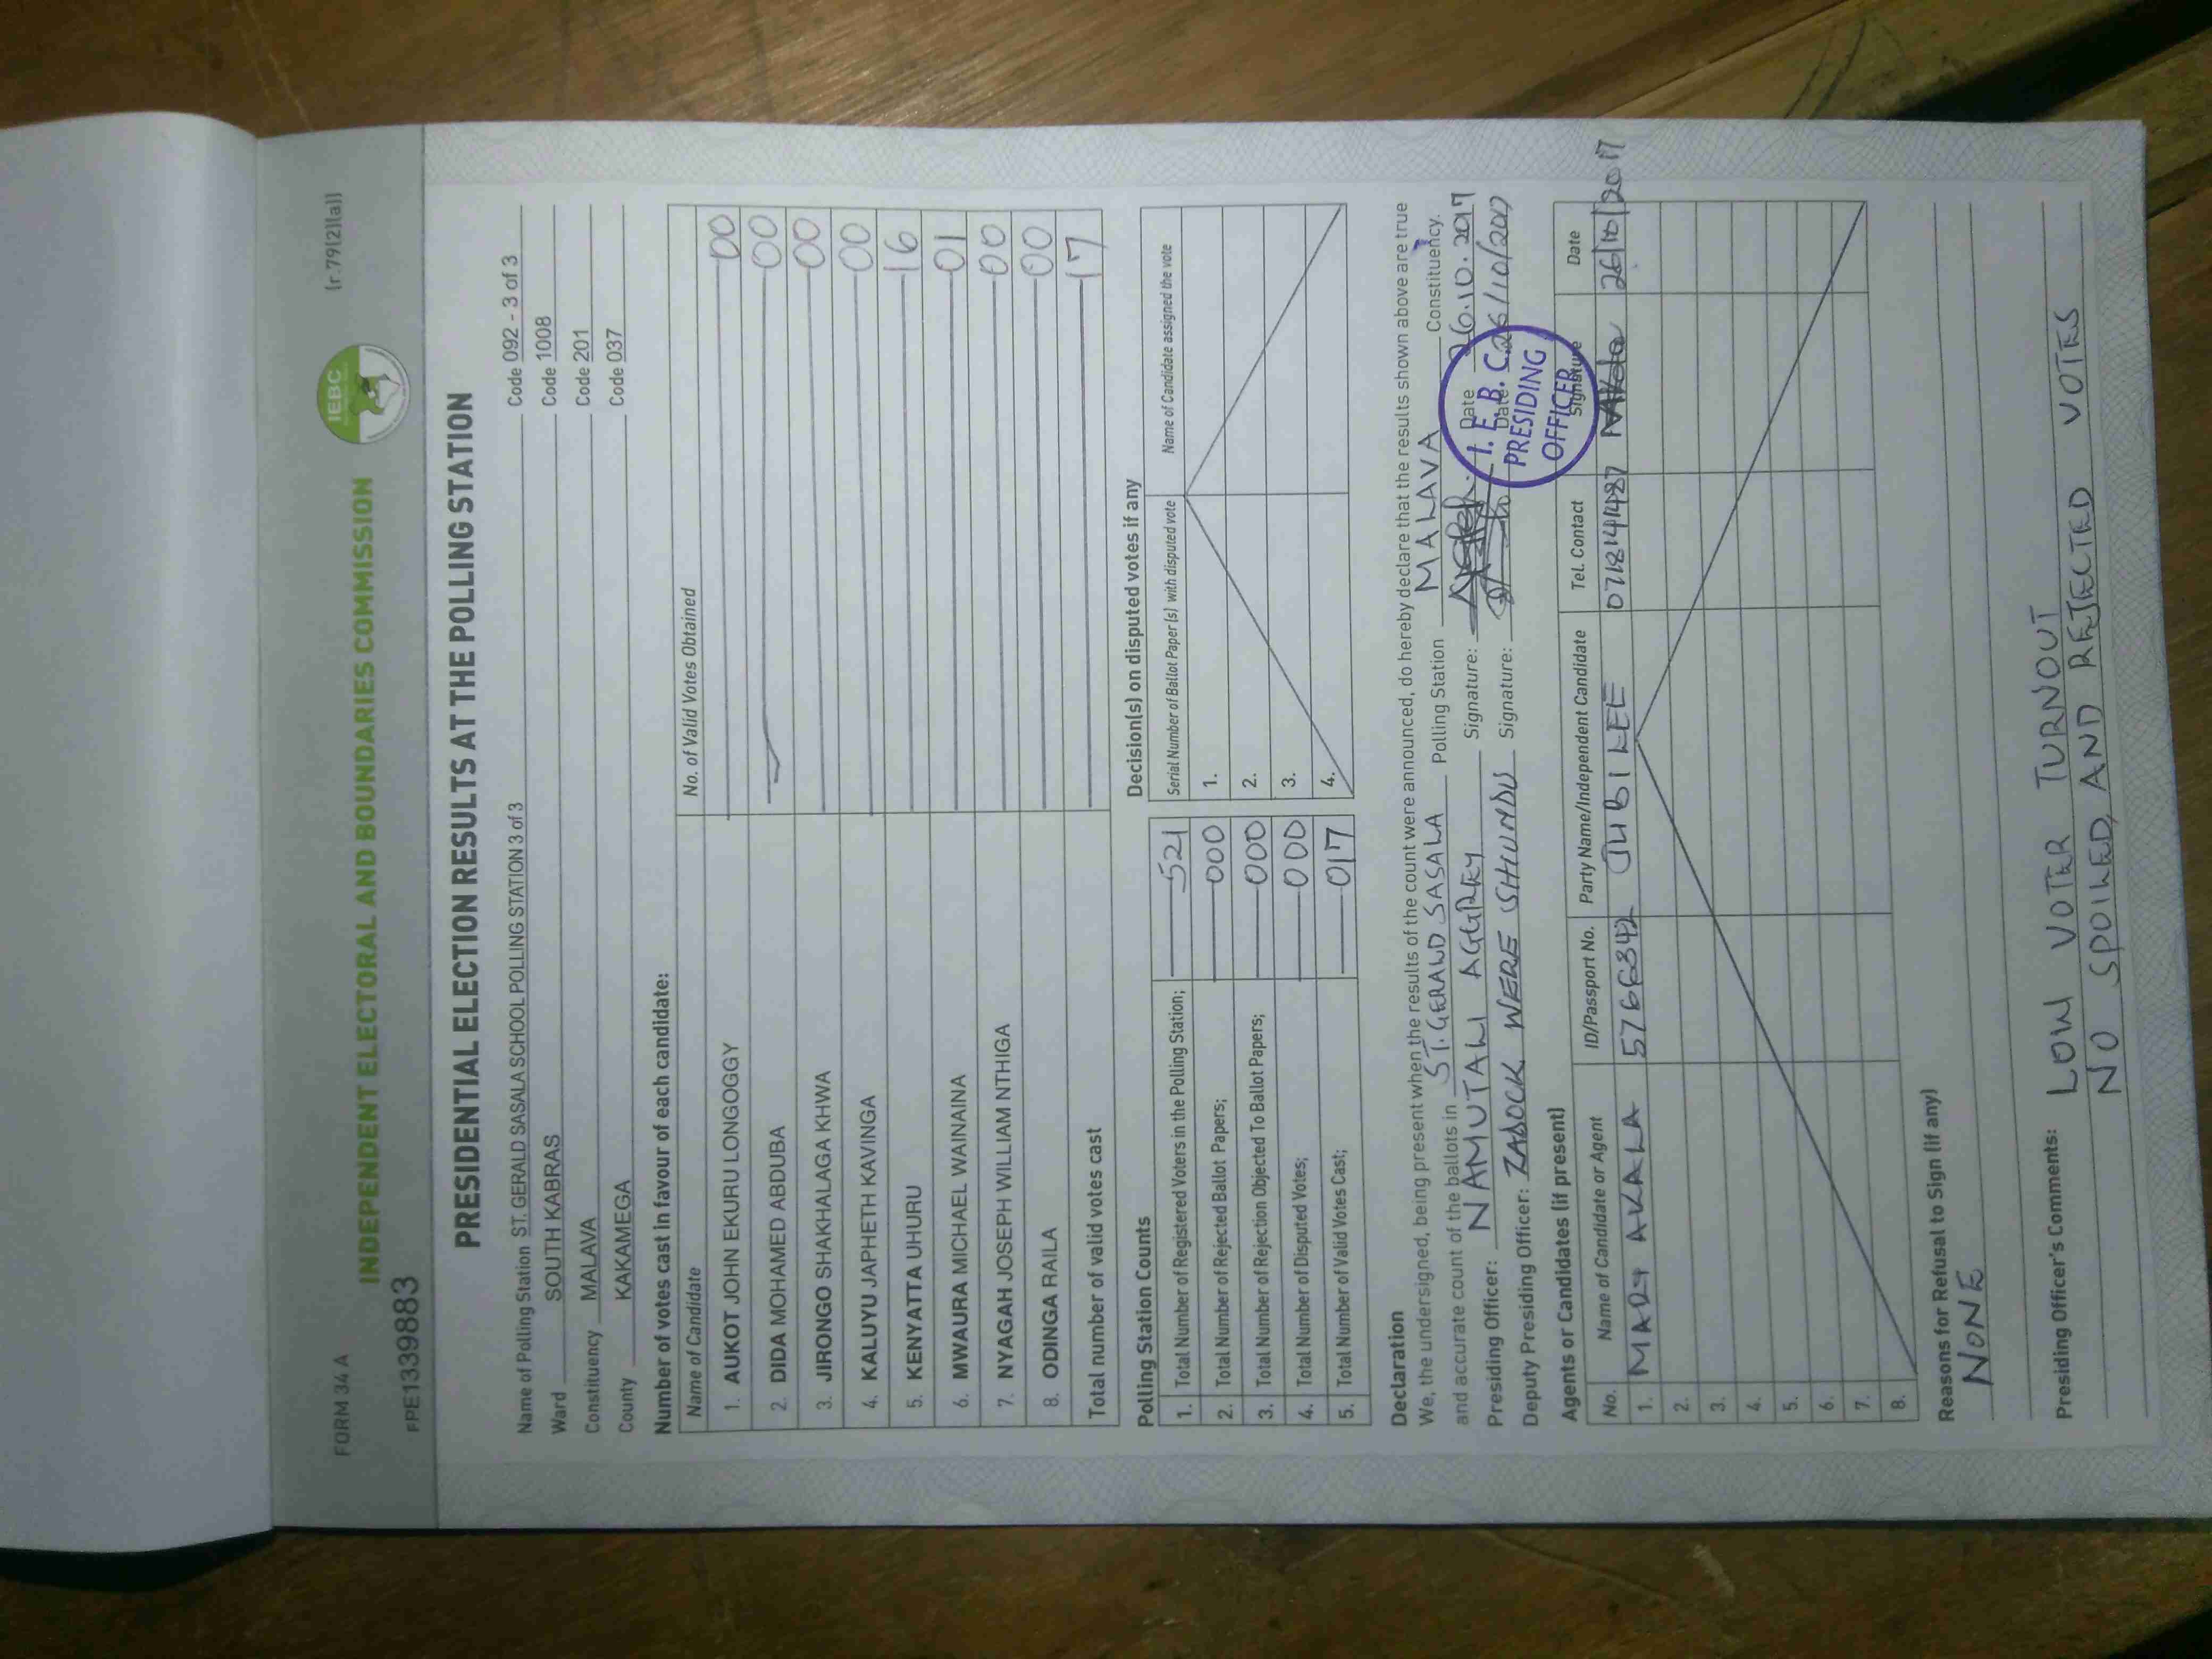 FORM 34 A
(r.79(2)(a))
IEBC
INDEPENDENT ELECTORAL AND BOUNDARIES COMMISSION
FPE1339883
PRESIDENTIAL ELECTION RESULTS AT THE POLLING STATION
Name of Polling Station ST. GERALD SASALA SCHOOL POLLING STATION 3 of 3 Code 092 - 3 of 3
Ward SOUTH KABRAS Code 1008
Constituency MALAVA Code 201
County KAKAMEGA Code 037
Number of votes cast in favour of each candidate:
Name of Candidate No. of Valid Votes Obtained
1. AUKOT JOHN EKURU LONGOGGY 00
2. DIDA MOHAMED ABDUBA 00
3. JIRONGO SHAKHALAGA KHWA 00
4. KALUYU JAPHETH KAVINGA 00
5. KENYATTA UHURU 16
6. MWAURA MICHAEL WAINAINA 01
7. NYAGAH JOSEPH WILLIAM NTHIGA 00
8. ODINGA RAILA 00
Total number of valid votes cast 17
Polling Station Counts
1. Total Number of Registered Voters in the Polling Station; 521
2. Total Number of Rejected Ballot Papers; 000
3. Total Number of Rejection Objected To Ballot Papers; 000
4. Total Number of Disputed Votes; 000
5. Total Number of Valid Votes Cast; 017
Decision(s) on disputed votes if any
Serial Number of Ballot Paper (s) with disputed vote Name of Candidate assigned the vote
1.
2.
3.
4.
Declaration
We, the undersigned, being present when the results of the count were announced, do hereby declare that the results shown above are true
and accurate count of the ballots in ST. GERAND SASALA Polling Station MALAVA Constituency.
Presiding Officer: NAMUTALI AGGREY Signature: Date 26.10.2017
Deputy Presiding Officer: ZADOCK WERE SHUNDU Signature: Date 26/10/2017
I. E. B. C.
PRESIDING
OFFICER
Agents or Candidates (if present)
No. Name of Candidate or Agent ID/Passport No. Party Name/Independent Candidate Tel. Contact Signature Date
1. MARY AKALA 5766842 JUBILEE 26/10/2017
2.
3.
4.
5.
6.
7.
8.
Reasons for Refusal to Sign (if any)
NONE
Presiding Officer's Comments: LOW VOTER TURNOUT
NO SPOILED, AND REJECTED VOTES